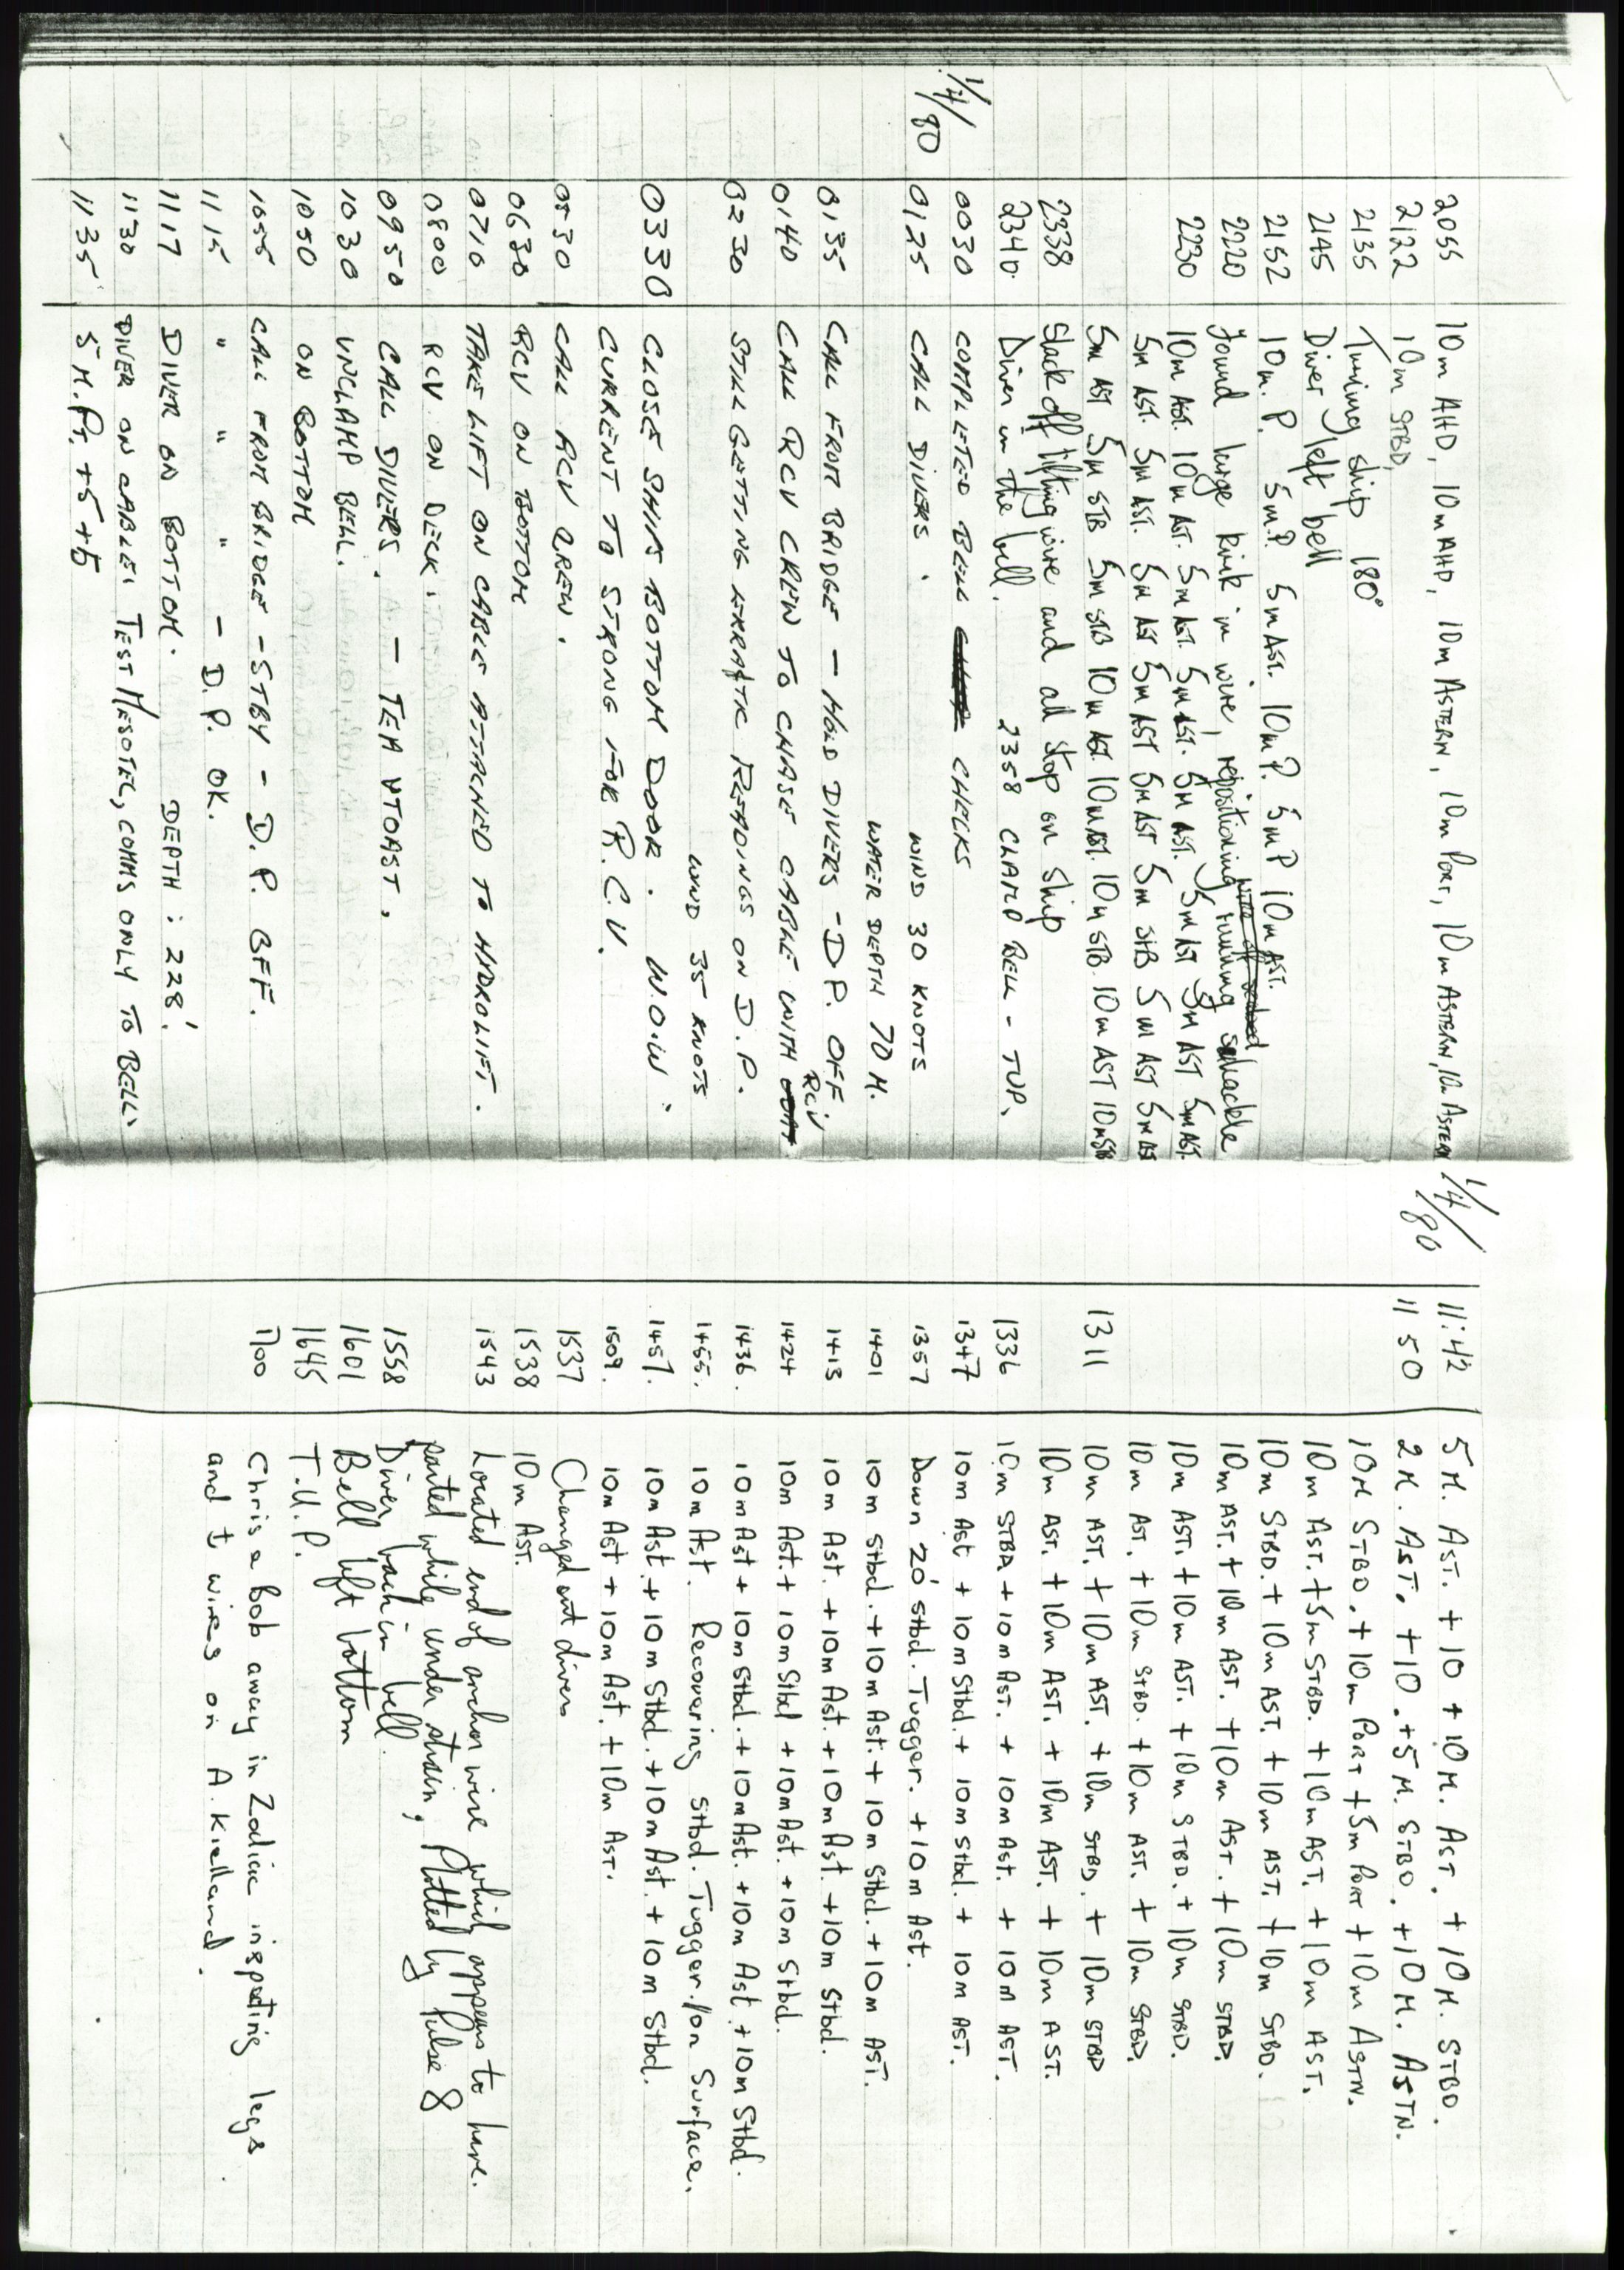 2055 10m AHD, 10m AHD, 10m ASTERN, 10m PORT, 10m ASTERN, 10m ASTERN
2122 10m STBD,
2135 Turning ship 180°
2145 Diver left bell
2152 10m. P. 5m.P. 5m AST. 10m P. 5m P 10m AST.
2220 found large kink in wire, repositioning running shackle
2230 10m AST. 10m AST. 5m AST. 5m AST. 5m AST. 5m AST 5m AST 5m AST.
5m AST. 5m AST. 5m AST 5m AST 5m AST 5m STB 5m AST 5m AST
5m AST 5m STB 5m STB 10m AST 10m AST. 10m STB. 10m AST 10m STB
2338 Slack off lifting wire and all stop on ship
2340. Diver in the bell. 2358 CLAMP BELL - TUP.
0030 COMPLETED BELL CHECKS
1/4/80 0125 CALL DIVERS. WIND 30 KNOTS
WATER DEPTH 70 M.
0135 CALL FROM BRIDGE - HOLD DIVERS - D.P. OFF
0140 CALL RCV CREW TO CHASE CABLE WITH RCV
0230 STILL GETTING ERRATIC READINGS ON D.P.
WIND 35 KNOTS
0330 CLOSE SHIPS BOTTOM DOOR. W.O.W.
CURRENT TO STRONG FOR R.C.V.
0530 CALL RCV CREW.
0630 RCV ON BOTTOM
0710 TAKE LIFT ON CABLE ATTACHED TO HYDROLIFT.
0800 RCV ON DECK.
0950 CALL DIVERS. - TEA & TOAST.
1030 UNCLAMP BELL.
1050 ON BOTTOM
1055 CALL FROM BRIDGE - STBY - D.P. OFF.
1115 " " " - D.P. OK.
1117 DIVER ON BOTTOM. DEPTH: 228'.
1130 DIVER ON CABLE. TEST MESOTEL, COMMS ONLY TO BELL.
1135 5 M. PT. +5 +5
1/4/80
11:42 5 M. AST. + 10 + 10 M. AST. + 10 M. STBD.
11 50 2 M. AST. + 10. + 5 M. STBD. + 10 M. ASTN.
10 M STBD. + 10m PORT + 5m PORT + 10m ASTN.
10m AST. + 5m STBD. + 10m AST. + 10m AST.
10m STBD. + 10m AST. + 10m AST. + 10m STBD.
10m AST. + 10m AST. + 10m AST. + 10m STBD.
10m AST. + 10m AST. + 10m STBD. + 10m STBD.
10m AST. + 10m STBD. + 10m AST. + 10m STBD.
1311 10m AST. + 10m AST. + 10m STBD. + 10m STBD
10m AST. + 10m AST. + 10m AST. + 10m AST.
1336 10m STBD + 10m AST. + 10m AST. + 10m AST.
1347 10m Ast + 10m Stbd. + 10m Stbd. + 10m AST.
1357 Down 20' Stbd. Tugger. + 10m Ast.
1401 10m Stbd. + 10m Ast. + 10m Stbd. + 10m AST.
1413 10m Ast. + 10m Ast. + 10m Ast. + 10m Stbd.
1424 10m Ast. + 10m Stbd + 10m Ast. + 10m Stbd.
1436. 10m Ast + 10m Stbd. + 10m Ast. + 10m Ast + 10m Stbd.
1455. 10m Ast. Recovering Stbd. Tugger. /on Surface.
1457. 10m Ast. + 10m Stbd. + 10m Ast. + 10m Stbd.
1509. 10m Ast + 10m Ast. + 10m Ast.
1537 Changed out divers
1538 10m AST.
1543 Located end of anchor wire which appears to have.
parted while under strain, Plotted by Pulse 8
1558 Diver back in bell.
1601 Bell left bottom
1645 T.U.P.
1700 Chris & Bob away in Zodiac inspecting legs
and t wires on A. Kielland.